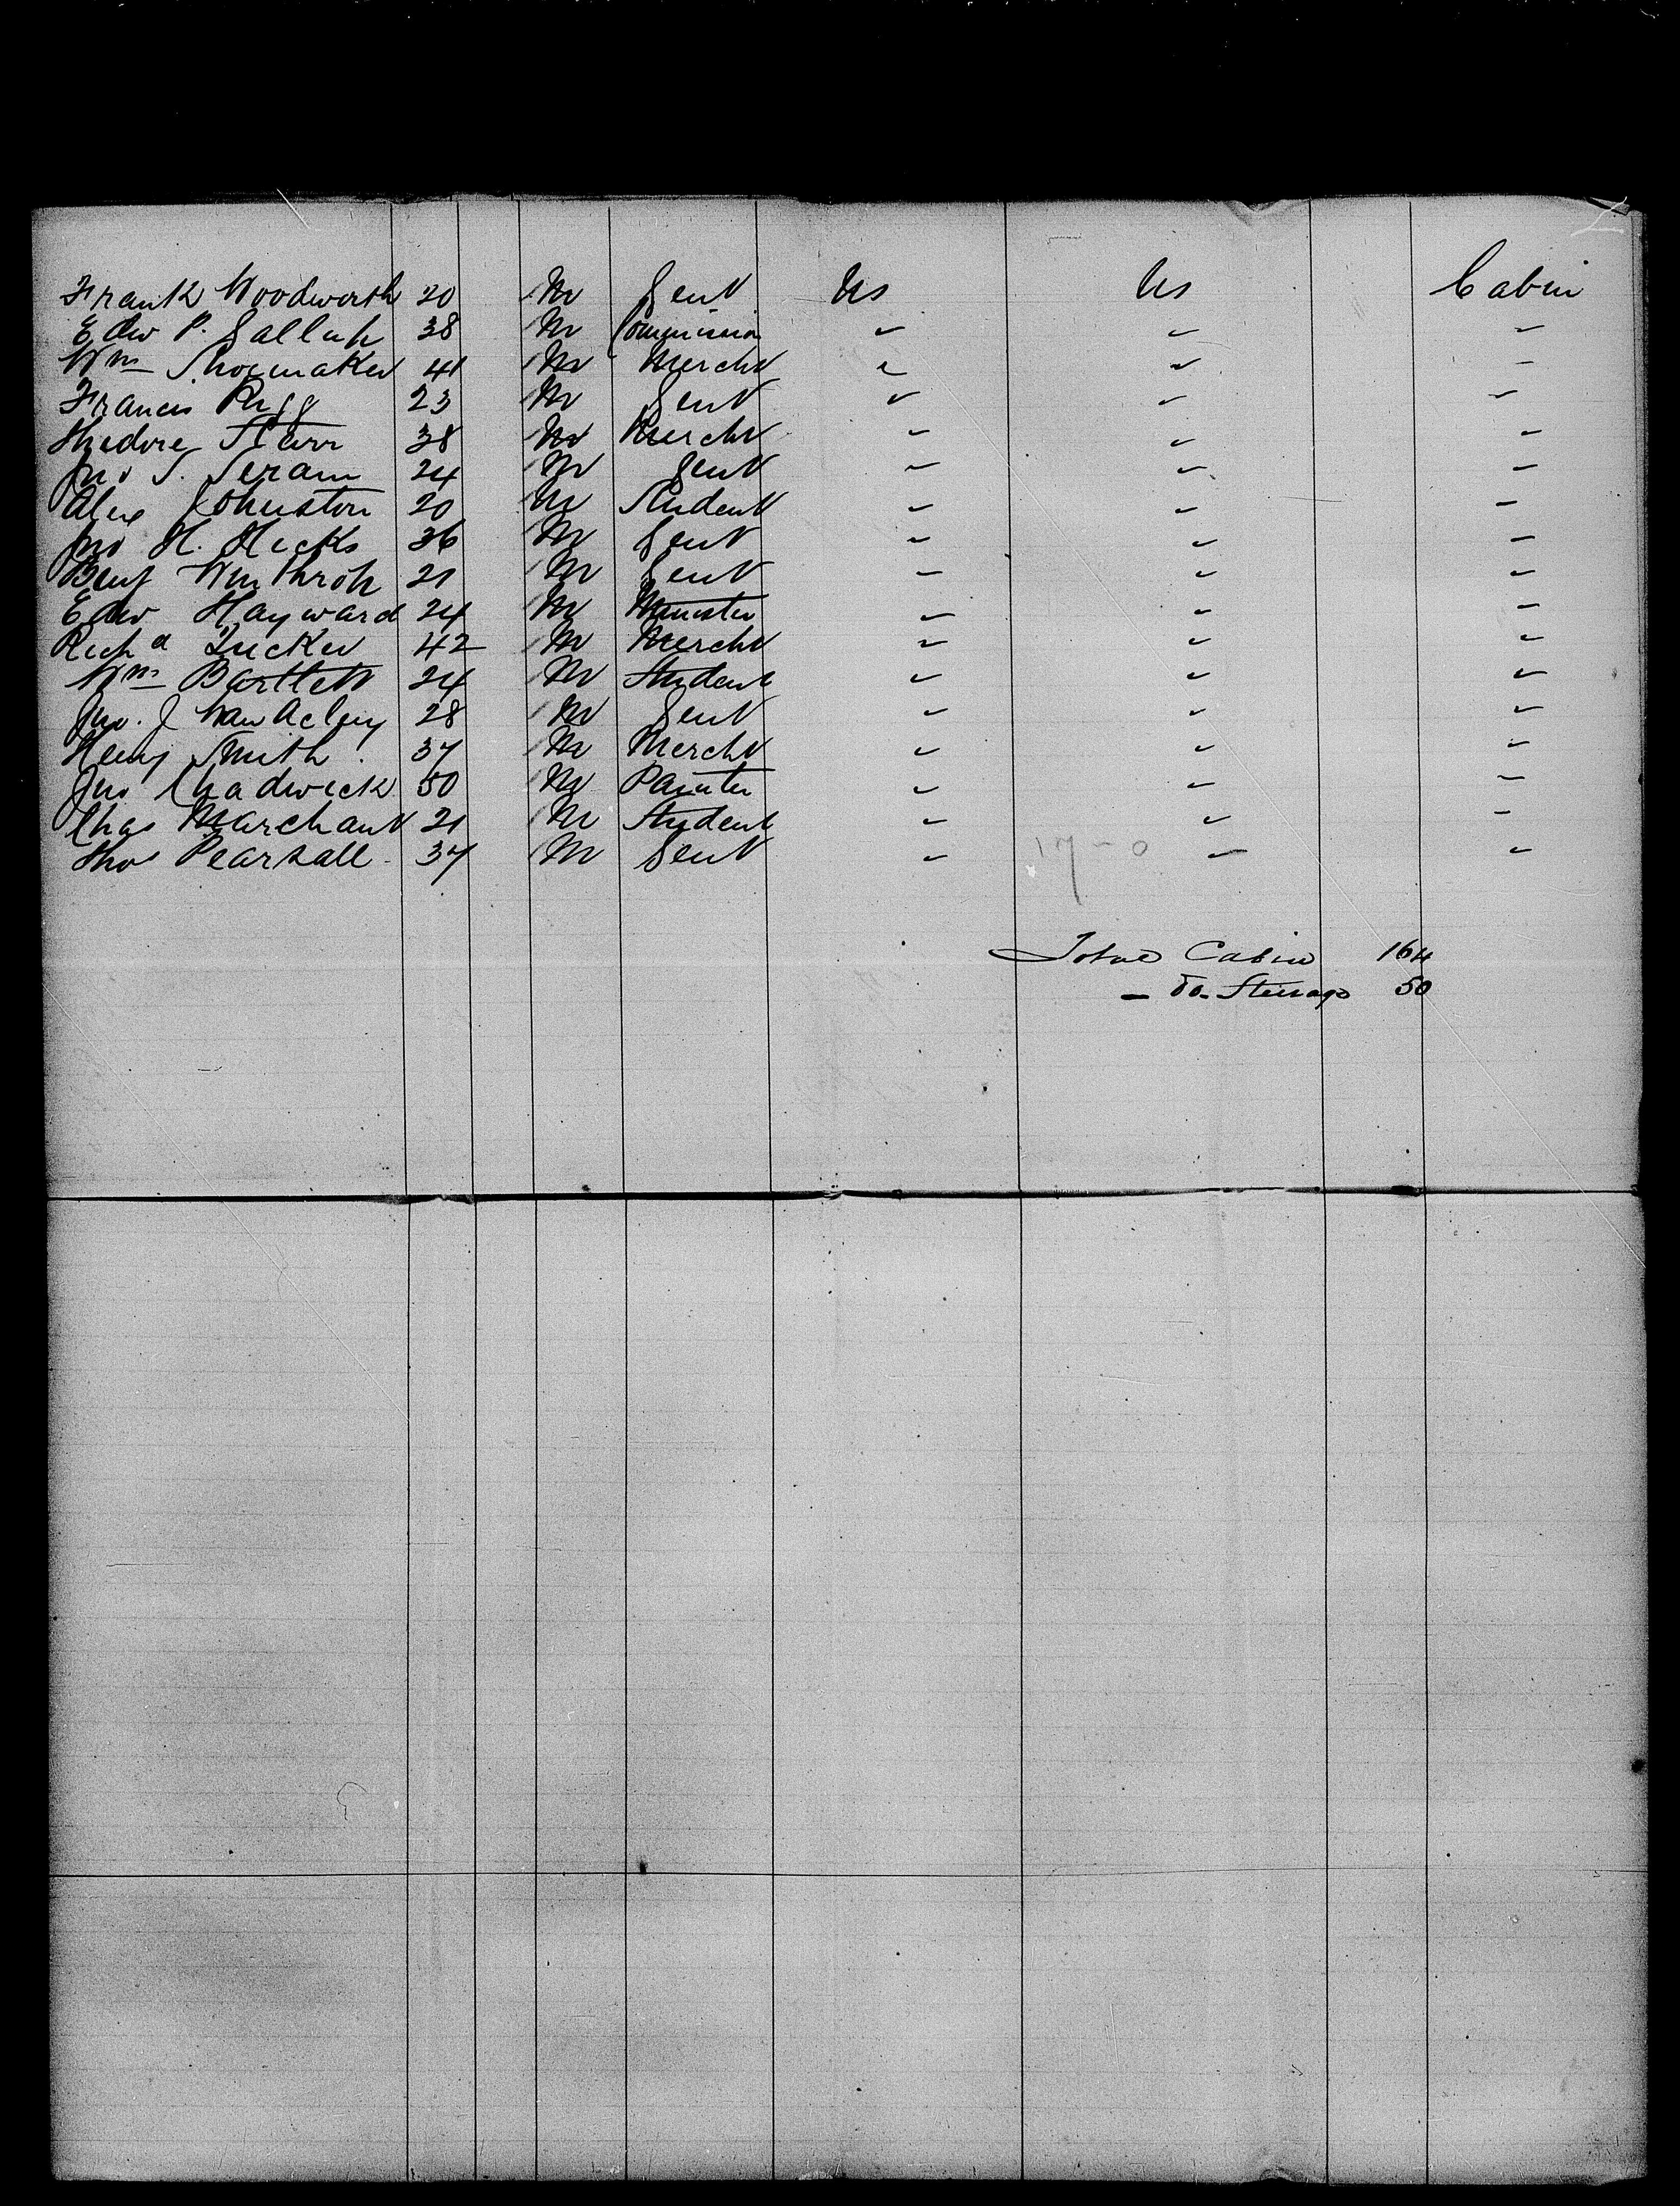 Frank Woodworth 20 M Gent US US Cabin
Edw P. Gallup 38 M Commission " " "
Wm Shoemaker 41 M Mercht " " "
Francis Rigg 23 M Gent " " "
Thedore Starr 38 M Mercht " " "
Jno S. 24 M Gent " " "
Alex Johnston 20 M Student " " "
Jno H. Hicks 36 M Gent " " "
Benj Winthrop 21 M Gent " " "
Edw Hayward 24 M Minister " " "
Richd Tucker 42 M Mercht " " "
Wm Bartlett 24 M Student " " "
Jno. J 28 M Gent " " "
Henry Smith 37 M Mercht " " "
Jno Chadwick 50 M Painter " " "
Chas Marchant 21 M Student " " "
Thos Pearsall 37 M Gent " " "
17-0
Total Cabin 164
- do - Steerage 50